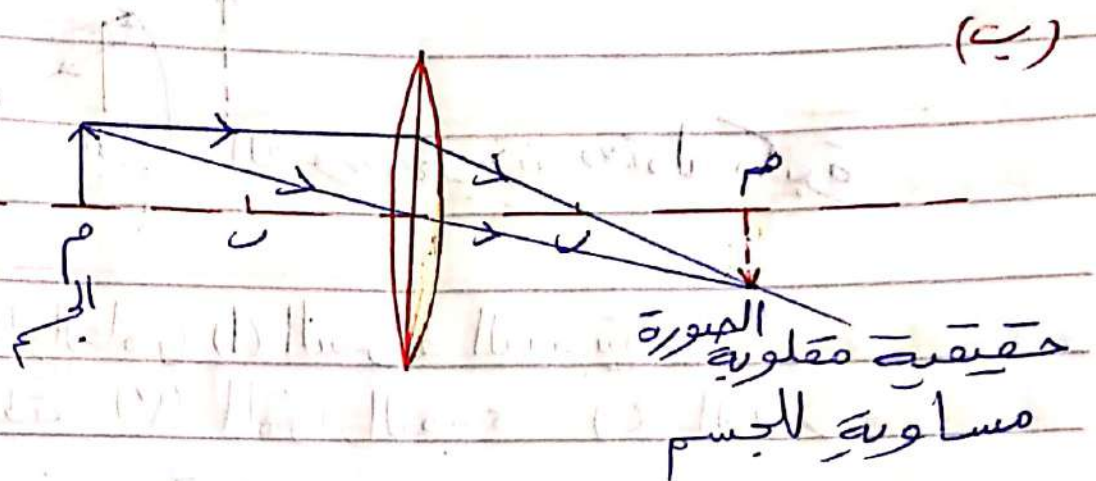 (ب)
م
ن
ن
م
الجسم
الصورة
حقيقية مقلوبة
مساوية للجسم